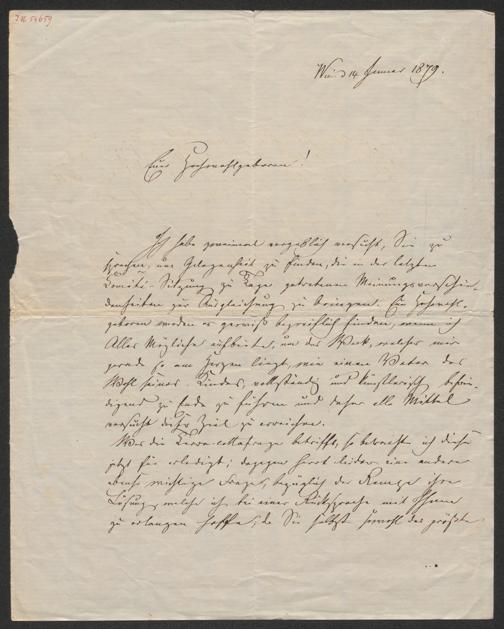 IN 54659
Wien 14 Januar 1879.
Euer Hochwohlgeboren!
Ich habe zweimal vergeblich versucht, Sie zu
sprechen, um Gelegenheit zu finden, die in der letzten
Comité-Sitzung zu Tage getretenen Meinungsverschie-
denheiten zur Ausgleichung zu bringen. Eur Hochwohl-
geboren werden es gewiß begreiflich finden, wenn ich
Alles Mögliche aufbiete, um das Werk, welches mir
gerade so am Herzen liegt, wie einem Vater das
Wohl seines Kindes, vollständig und künstlerisch befrie-
digend zu Ende zu führen und daher alle Mittel
versucht dieses Ziel zu erreichen.
Was die Terra-cottafrage betrifft, so betrachte ich diese
jetzt für erledigt; dagegen harrt leider eine andere
ebenso wichtige Frage, bezüglich der Rampe ihre
Lösung, welche ich bei einer Rücksprache mit Ihnen
zu erlangen hoffe, da Sie selbst sowohl das größte